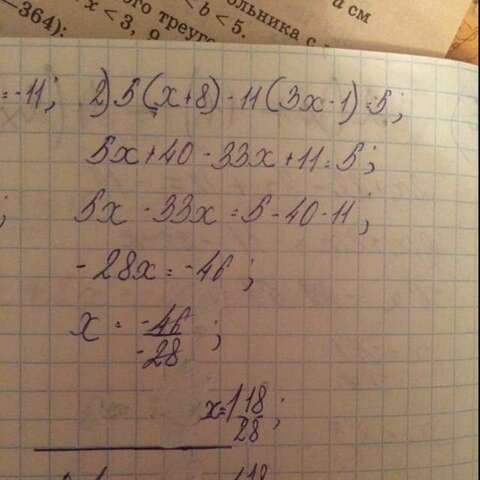 —364):
x < 3, 9
ого треуго
ольника с
< b < 5.
a см
= -11;
2) 5(x+8) - 11(3x-1) = 5;
5x + 40 - 33x + 11 = 5;
;
5x - 33x = 5 - 40 - 11;
-28x = -46;
x = -46/-28;
x = 1 18/28;